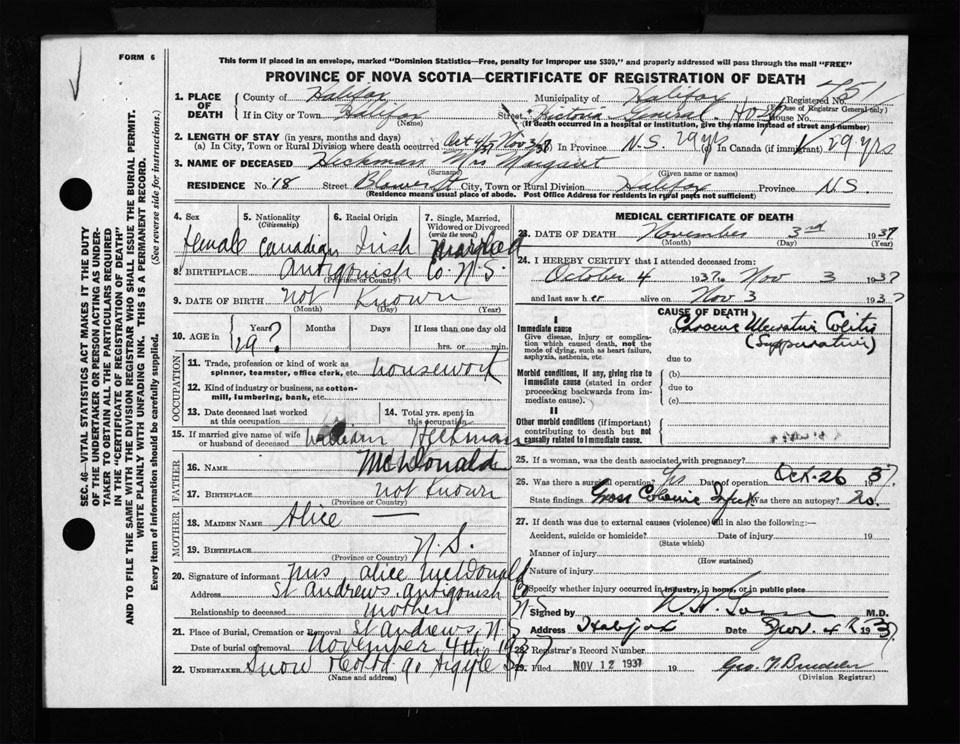 FORM 6
This form if placed in an envelope, marked "Dominion Statistics—Free, penalty for improper use $300," and properly addressed will pass through the mail "FREE"
PROVINCE OF NOVA SCOTIA—CERTIFICATE OF REGISTRATION OF DEATH
SEC. 46—VITAL STATISTICS ACT MAKES IT THE DUTY
OF THE UNDERTAKER OR PERSON ACTING AS UNDER-
TAKER TO OBTAIN ALL THE PARTICULARS REQUIRED
IN THE "CERTIFICATE OF REGISTRATION OF DEATH"
AND TO FILE THE SAME WITH THE DIVISION REGISTRAR WHO SHALL ISSUE THE BURIAL PERMIT.
WRITE PLAINLY WITH UNFADING INK. THIS IS A PERMANENT RECORD.
Every item of information should be carefully supplied. (See reverse side for instructions.)
1. PLACE OF DEATH County of Halifax Municipality of Halifax Registered No.
(For use of Registrar General only)
If in City or Town Halifax Street Victoria General Hosp House No.
(Name) (If death occurred in a hospital or institution, give the name instead of street and number)
2. LENGTH OF STAY (in years, months and days)
(a) In City, Town or Rural Division where death occurred Oct 4/37 Nov 3/37 (b) In Province N.S. 29 yrs (c) In Canada (if immigrant) 29 yrs
3. NAME OF DECEASED Heckman Mrs Margaret
(Surname) (Given or names)
RESIDENCE No. 18 Street City, Town or Rural Division Halifax Province N.S
(Residence means usual place of abode. Post Office Address for residents in rural parts not sufficient)
4. Sex 5. Nationality (Citizenship) 6. Racial Origin 7. Single, Married, Widowed or Divorced (write the word)
female Canadian Irish married
8. BIRTHPLACE Antigonish Co. N.S.
(Province or Country)
9. DATE OF BIRTH not Known
(Month) (Day) (Year)
10. AGE in Years Months Days If less than one day old
29? hrs. or min.
OCCUPATION
11. Trade, profession or kind of work as spinner, teamster, office clerk, etc. housework
12. Kind of industry or business, as cotton-mill, lumbering, bank, etc.
13. Date deceased last worked at this occupation 14. Total yrs. spent in this occupation
15. If married give name of wife or husband of deceased William Heckman
FATHER
16. NAME McDonald
17. BIRTHPLACE not Known
(Province or Country)
MOTHER
18. MAIDEN NAME Alice —
19. BIRTHPLACE N.S.
(Province or Country)
20. Signature of informant Mrs Alice McDonald
Address St Andrews Antigonish Co N.S
Relationship to deceased mother
21. Place of Burial, Cremation or Removal St Andrews N.S
Date of burial or removal November 4th 1937
22. UNDERTAKER Snow & Co Ltd 90 Argyle St
(Name and address)
MEDICAL CERTIFICATE OF DEATH
23. DATE OF DEATH November 3rd 1937
(Month) (Day) (Year)
24. I HEREBY CERTIFY that I attended deceased from:
October 4 1937 to Nov 3 1937
and last saw her alive on Nov 3 1937
CAUSE OF DEATH
I
Immediate cause
Give disease, injury or complication which caused death, not the mode of dying, such as heart failure, asphyxia, asthenia, etc.
(a) Chronic Ulcerative Colitis
(Suppurative)
due to
Morbid conditions, if any, giving rise to immediate cause (stated in order proceeding backwards from immediate cause).
(b)
due to
(c)
II
Other morbid conditions (if important) contributing to death but not causally related to immediate cause.
25. If a woman, was the death associated with pregnancy?
26. Was there a surgical operation? Yes Date of operation Oct-26 1937
State findings Gross Colonic Infect. Was there an autopsy? no.
27. If death was due to external causes (violence) fill in also the following:—
Accident, suicide or homicide? Date of injury 19
(State which)
Manner of injury
(How sustained)
Nature of injury
Specify whether injury occurred in industry, in home, or in public place
Signed by M.D.
Address Halifax Date Nov. 4th 1937
28. Registrar's Record Number
29. Filed NOV 12 1937 19
(Division Registrar)